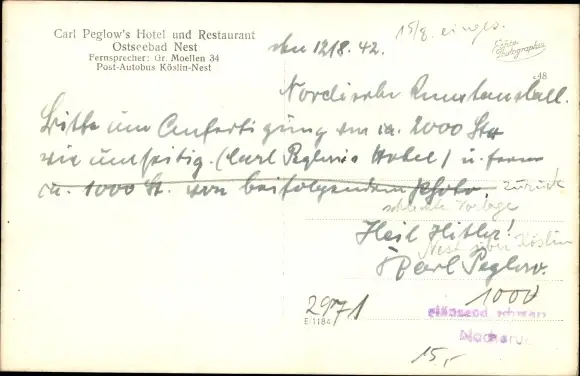 Carl Peglow's Hotel und Restaurant
Ostseebad Nest
Fernsprecher: Gr. Moellen 34
Post-Autobus Köslin-Nest
den 12/8. 42.
15/8. einges.
Echte Photographie
Nordische Kunstanstalt.
Bitte um Anfertigung von ca. 2000 Stck
wie umseitig. (Carl Peglows Hotel) u. ferner
ca. 1000 St. von beifolgendem Photo, zurück
schlechte Vorlage
Heil Hitler!
Nest über Köslin
Carl Peglow.
2971
1000
E/1184
glänzend schwarz
15,-